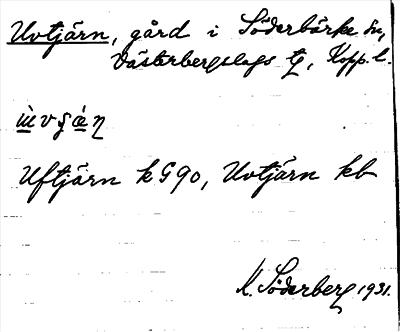 Uvtjärn, gård i Söderbärke sn,
Västerbergslags tg, Kopp. l.
Uftjärn k G 90, Uvtjärn kb
K. Söderberg 1931.